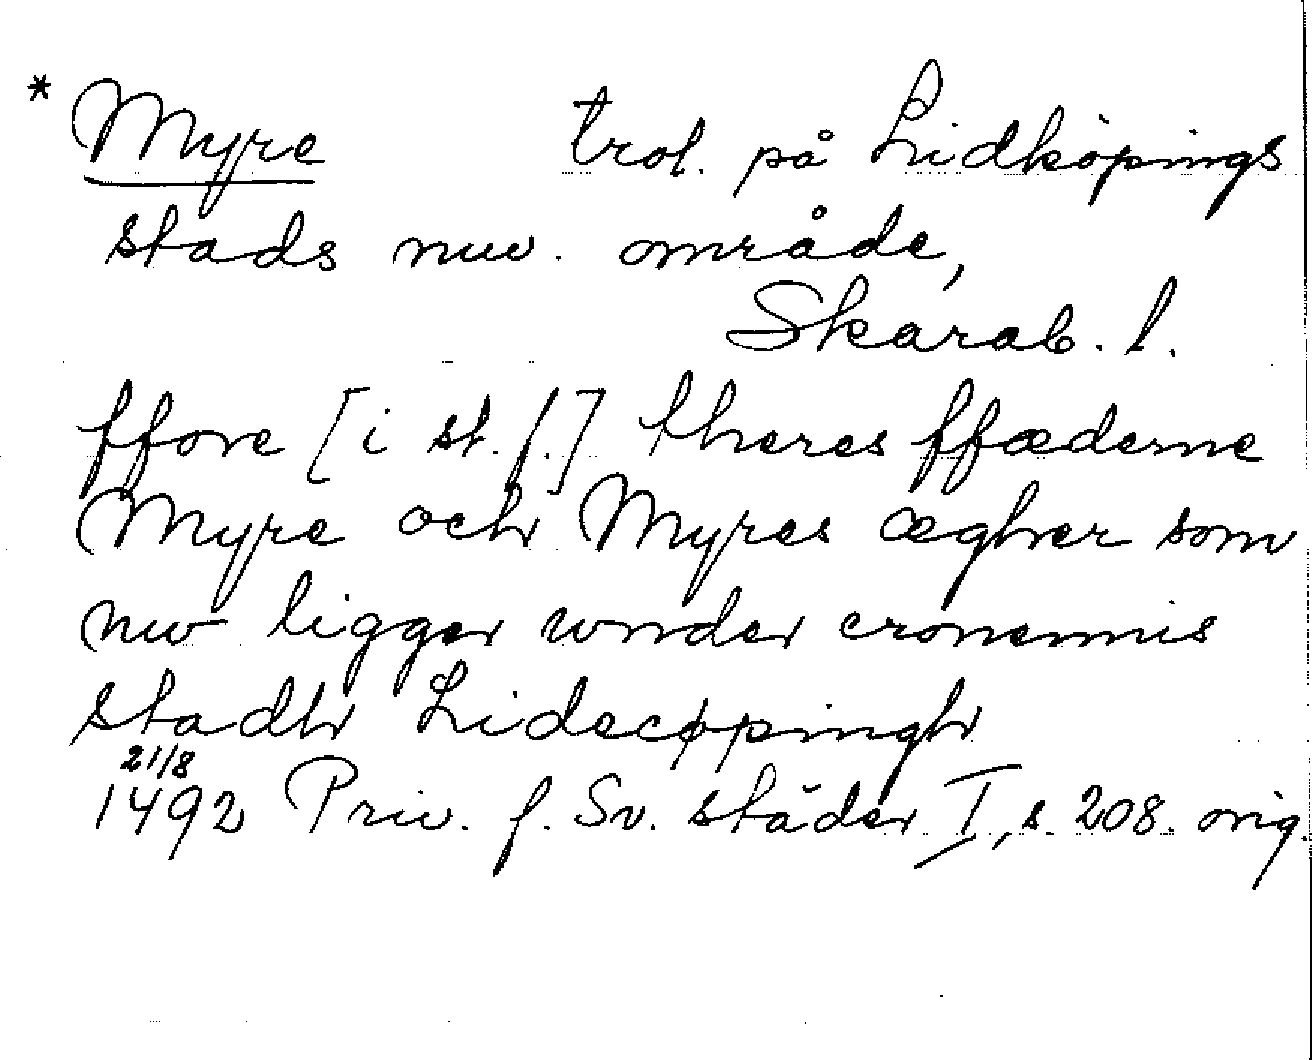 * Myre trol. på Lidköpings
stads nuv. område,
Skarab. l.
ffore [i st. f.] theres ffæderne
Myre och Myres ægher som
nw ligger wnder cronennis
stadh Lidecøpingh
21/8
1492 Priv. f. Sv. städer I, s. 208. orig.